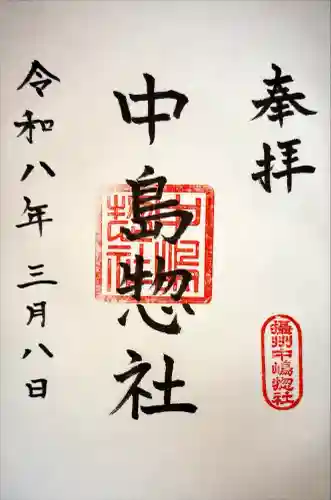 奉拝
中島惣社
令和八年三月八日
中嶋惣社
摂州中嶋惣社